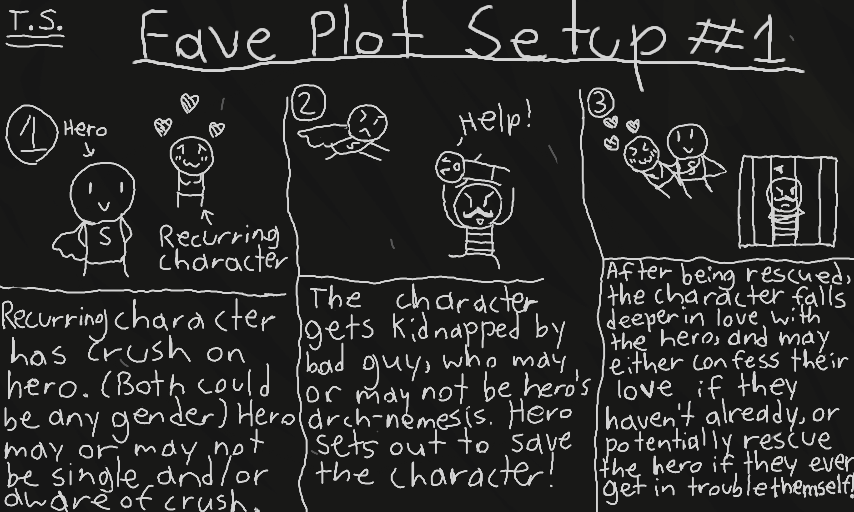 T.S.
Fave Plot Setup #1
1
Hero
S
Recurring
character
Recurring character
has crush on
hero. (Both could
be any gender) Hero
may or may not
be single and/or
aware of crush.
2
Help!
The character
gets kidnapped by
bad guy, who may
or may not be hero's
arch-nemesis. Hero
sets out to save
the character!
3
S
After being rescued,
the character falls
deeper in love with
the hero, and may
either confess their
love if they
haven't already, or
potentially rescue
the hero if they ever
get in trouble themself!